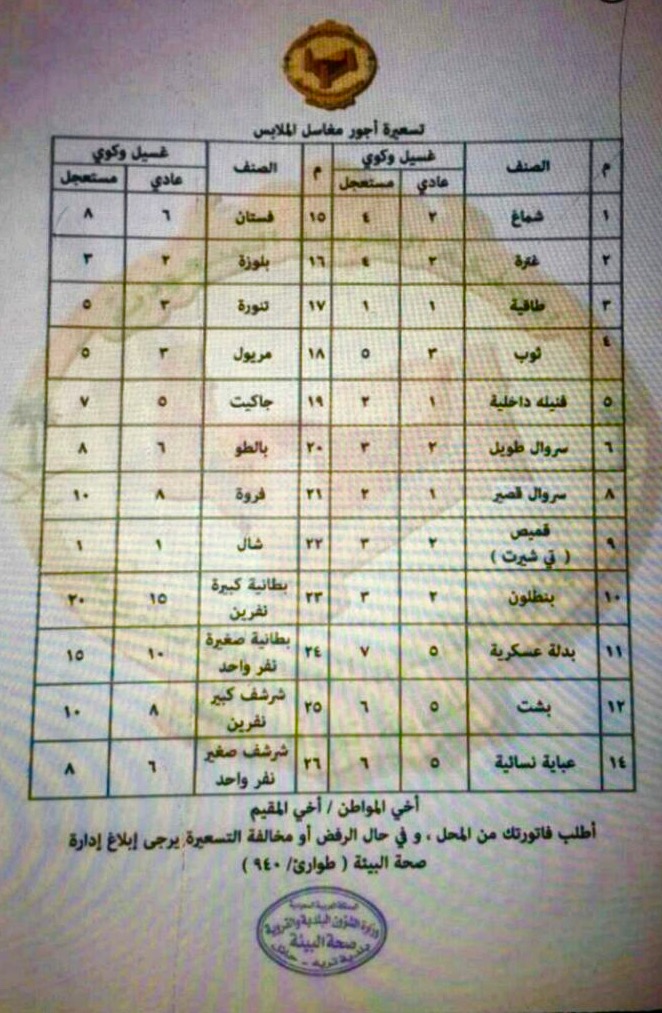 تسعيرة أجور مغاسل الملابس
م الصنف غسيل وكوي م الصنف غسيل وكوي
عادي مستعجل عادي مستعجل
١ شماغ ٢ ٤ ١٥ فستان ٦ ٨
٢ غترة ٢ ٤ ١٦ بلوزة ٢ ٣
٣ طاقية ١ ١ ١٧ تنورة ٣ ٥
٤ ثوب ٣ ٥ ١٨ مريول ٣ ٥
٥ فنيله داخلية ١ ٢ ١٩ جاكيت ٥ ٧
٦ سروال طويل ٢ ٣ ٢٠ بالطو ٦ ٨
٨ سروال قصير ١ ٢ ٢١ فروة ٨ ١٠
٩ قميص ( تي شيرت ) ٢ ٣ ٢٢ شال ١ ١
١٠ بنطلون ٢ ٣ ٢٣ بطانية كبيرة نفرين ١٥ ٢٠
١١ بدلة عسكرية ٥ ٧ ٢٤ بطانية صغيرة نفر واحد ١٠ ١٥
١٢ بشت ٥ ٦ ٢٥ شرشف كبير نفرين ٨ ١٠
١٤ عباية نسائية ٥ ٦ ٢٦ شرشف صغير نفر واحد ٦ ٨
أخي المواطن / أخي المقيم
أطلب فاتورتك من المحل ، و في حال الرفض أو مخالفة التسعيرة يرجى إبلاغ إدارة
صحة البيئة ( طوارئ/ ٩٤٠ )
المملكة العربية السعودية
وزارة الشؤون البلدية والقروية
صحة البيئة
بلدية تربه - حائل